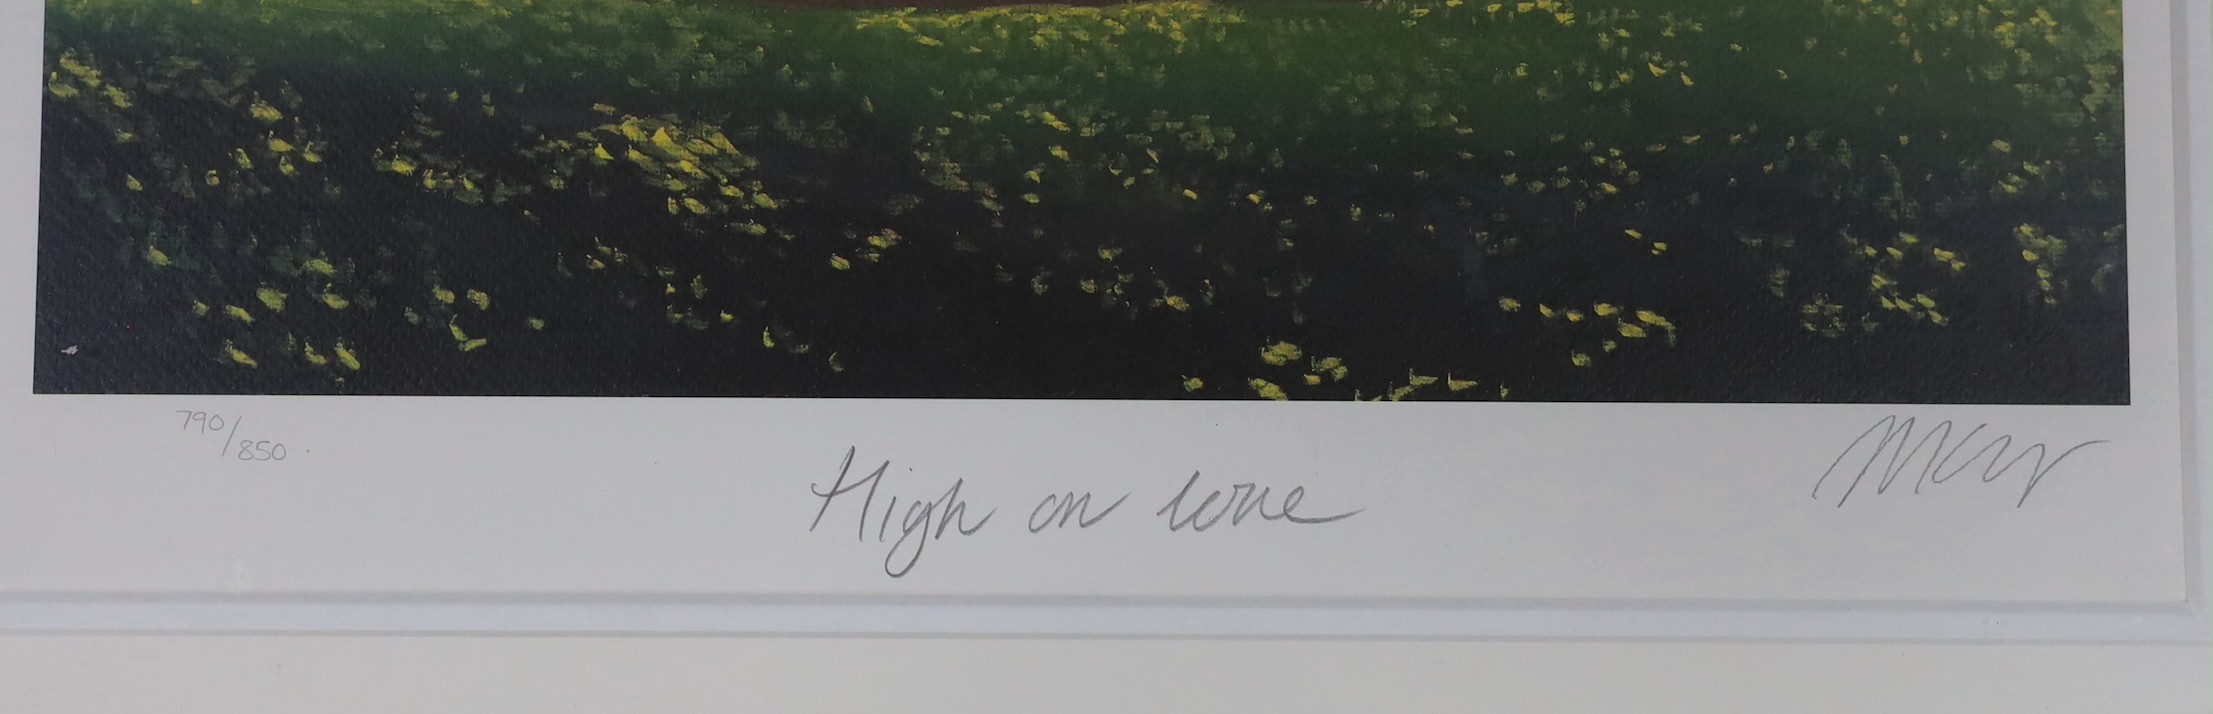 790/850
High on love